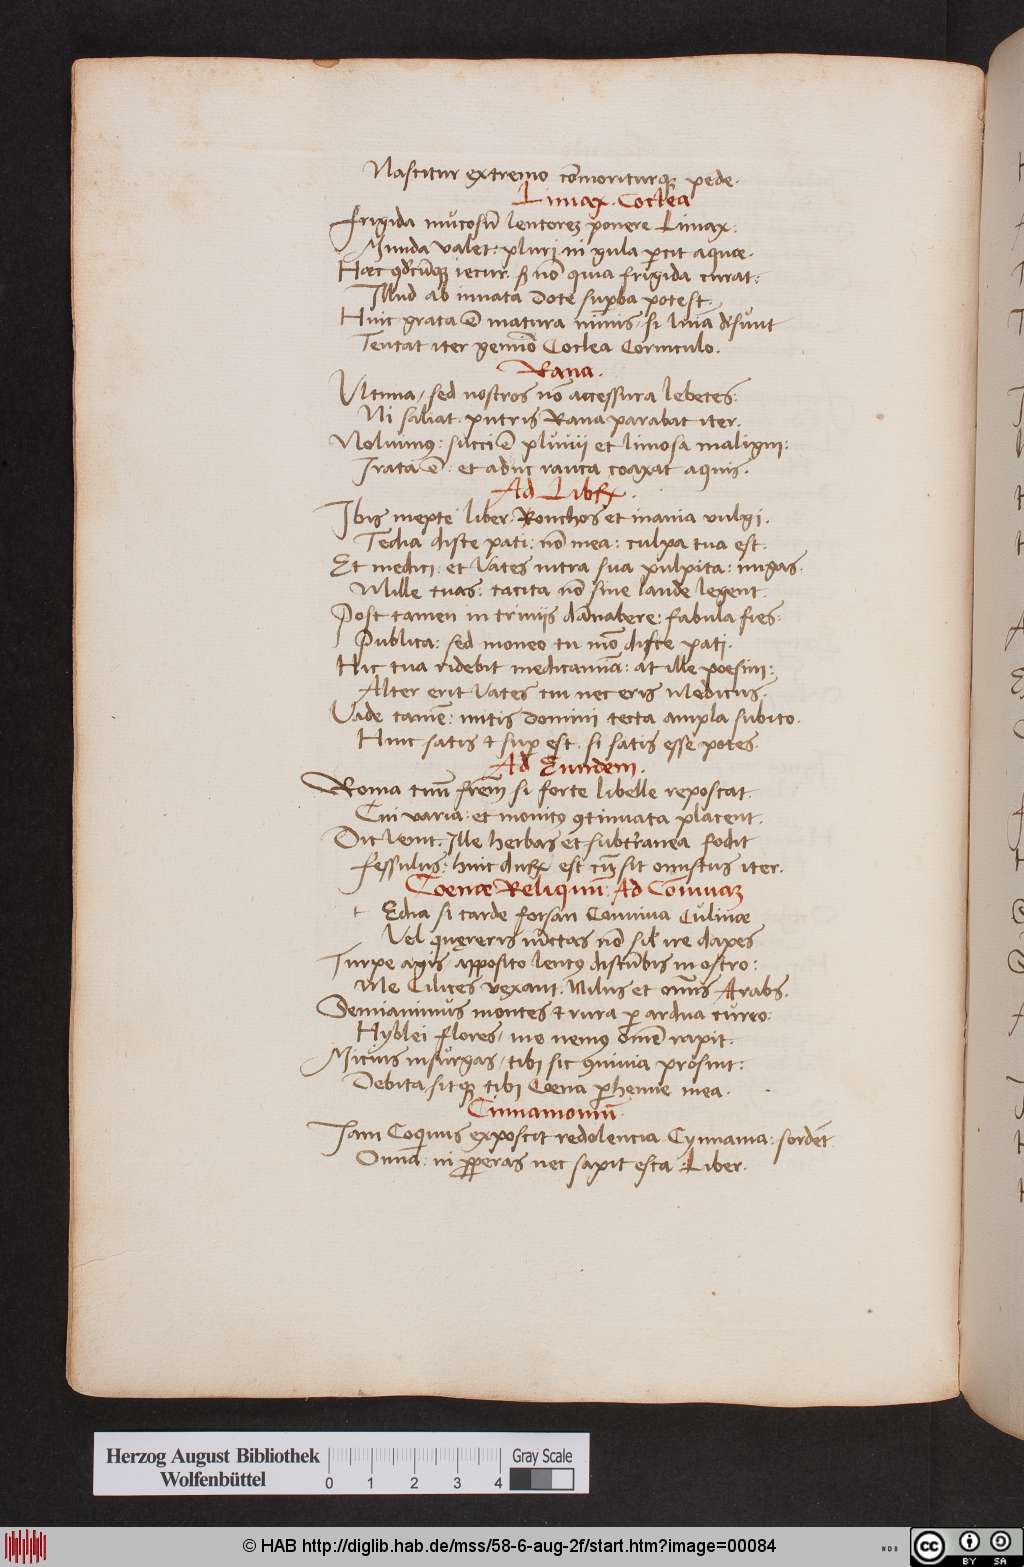 Nascitur extremo cōmoriturq; pede.
Limax. Coclea
Frigida mucosū lentorez ponere Limax:
Munda valet: pluri ni gula pcit aquæ.
Hæc qdcūq; iecur. s; nō quia frigida curat:
Illud ab innata dote supba potest.
Huic grata ē matura nimis / si linia dēsunt
Tentat iter gemino Coclea Corniculo.
Rana.
Vltima / sed nostros nō accessura lebetes:
Ni saliat. putris Rana parabat iter.
Noluimus: succi ē pluuii et limosa maligni:
Irata ē: et adhuc rauca coaxat aquis.
Ad Libr
Ibis inepte liber. Ronchos et inania vulgi.
Tedia disce pati: nō mea: culpa tua est.
Et medici: et Vates intra sua pulpita: nugas.
Mille tuas: tacita nō sine laude legent.
Post tamen in triuiis dānabere: fabula fies:
Publica: sed moneo tu mō disce pati.
Hic tua ridebit medicamīa: at ille poesim:
Alter erit Vates cui nec eris Medicus.
Vade tamē: mitis domini tecta ampla subito.
Huic satis & sup est. si satis esse potes.
Ad Eundem.
Roma tuū frēm si forte libelle reposcat.
Cui varia: et monitis 9tinuata placent.
Dic venit. Ille herbas et subtranea fodit
Fessulus: huic est cū sit onustus iter.
Coenæ Reliquiū: Ad Conuiuaz
Edia si tarde forsan Conuiua Culinæ
Vel quęreris nūctas nō sil ire dapes
Turpe agis apposito lentus discūbis in ostro:
Me Cilices vexant. Nilus et omīs Arabs.
Semianimus montes & rura p ardua curro:
Hyblei flores / me nemus omē rapit.
Micius insurgas / tibi sic 9uiuia prosint:
Debita sitq; tibi Coena phenne mea.
Cinnamomū.
Iam Coquus exposcit redolentia Cynnama: sordēt
Omīa: ni pperas nec sapit esca Liber.
Herzog August Bibliothek
Wolfenbüttel
0 1 2 3 4
Gray Scale
© HAB http://diglib.hab.de/mss/58-6-aug-2f/start.htm?image=00084
cc BY SA